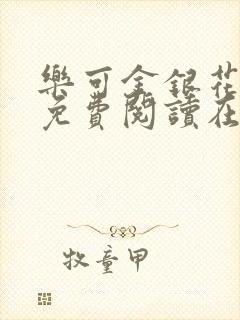 樂可金銀花
免費閱讀在
牧童甲